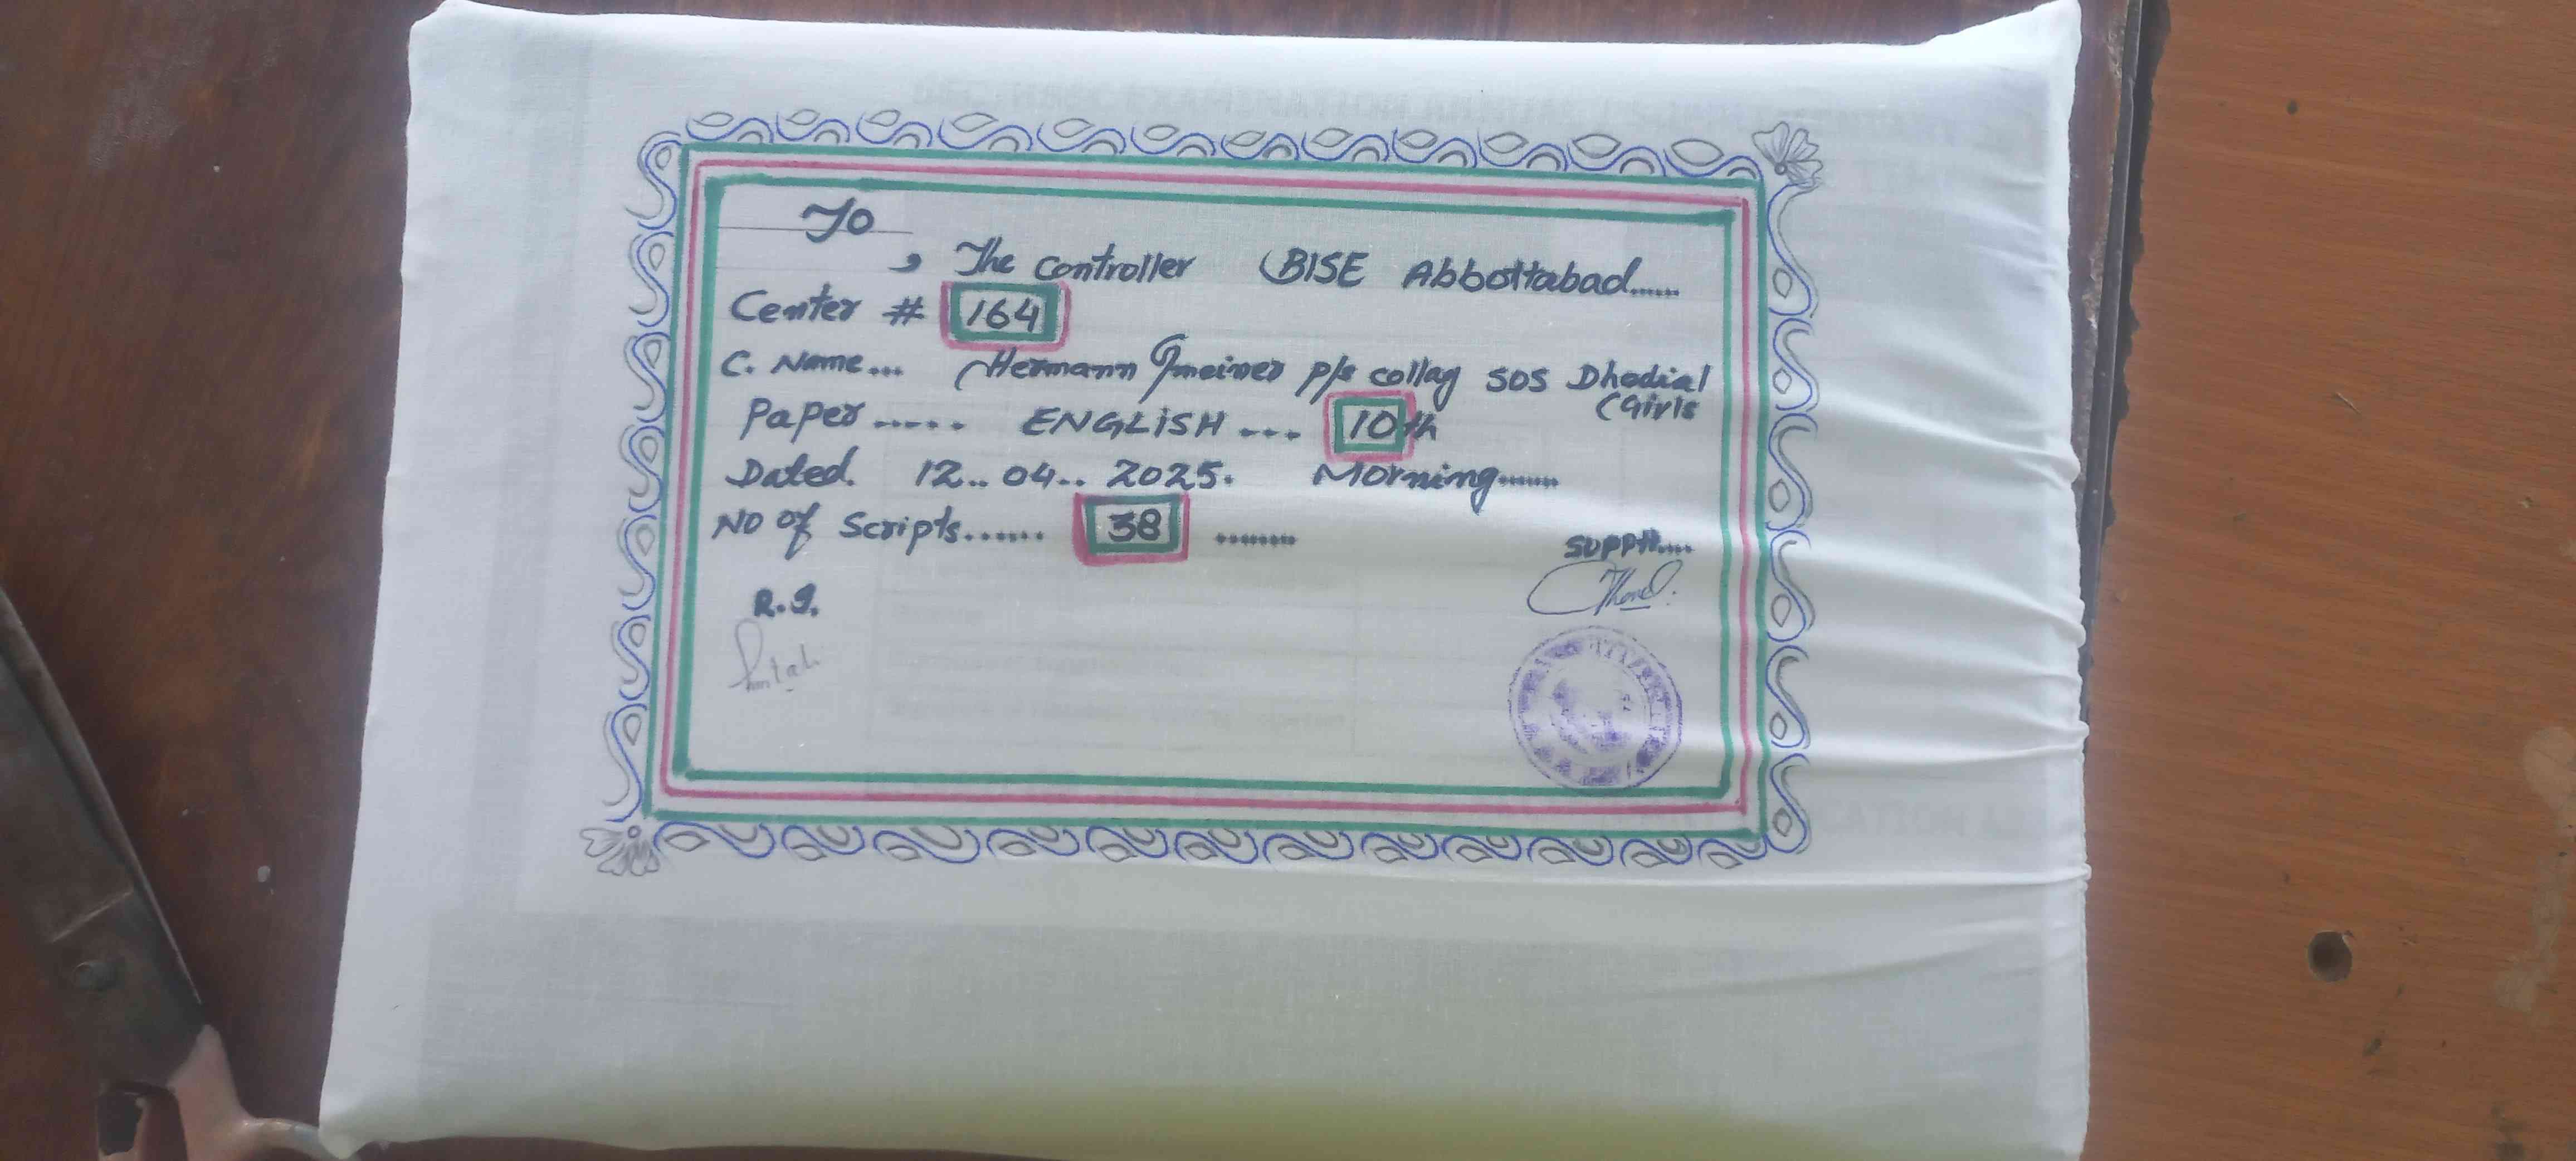 To
, The Controller BISE Abbottabad......
Center # 164
C. Name... Hermann Gmeiner p/s collag SOS Dhodial
(Girls
Paper ..... ENGLISH ... 10th
Dated. 12.. 04.. 2025. Morning.......
NO of Scripts...... 38 ........
SUPPtt....
R.I.